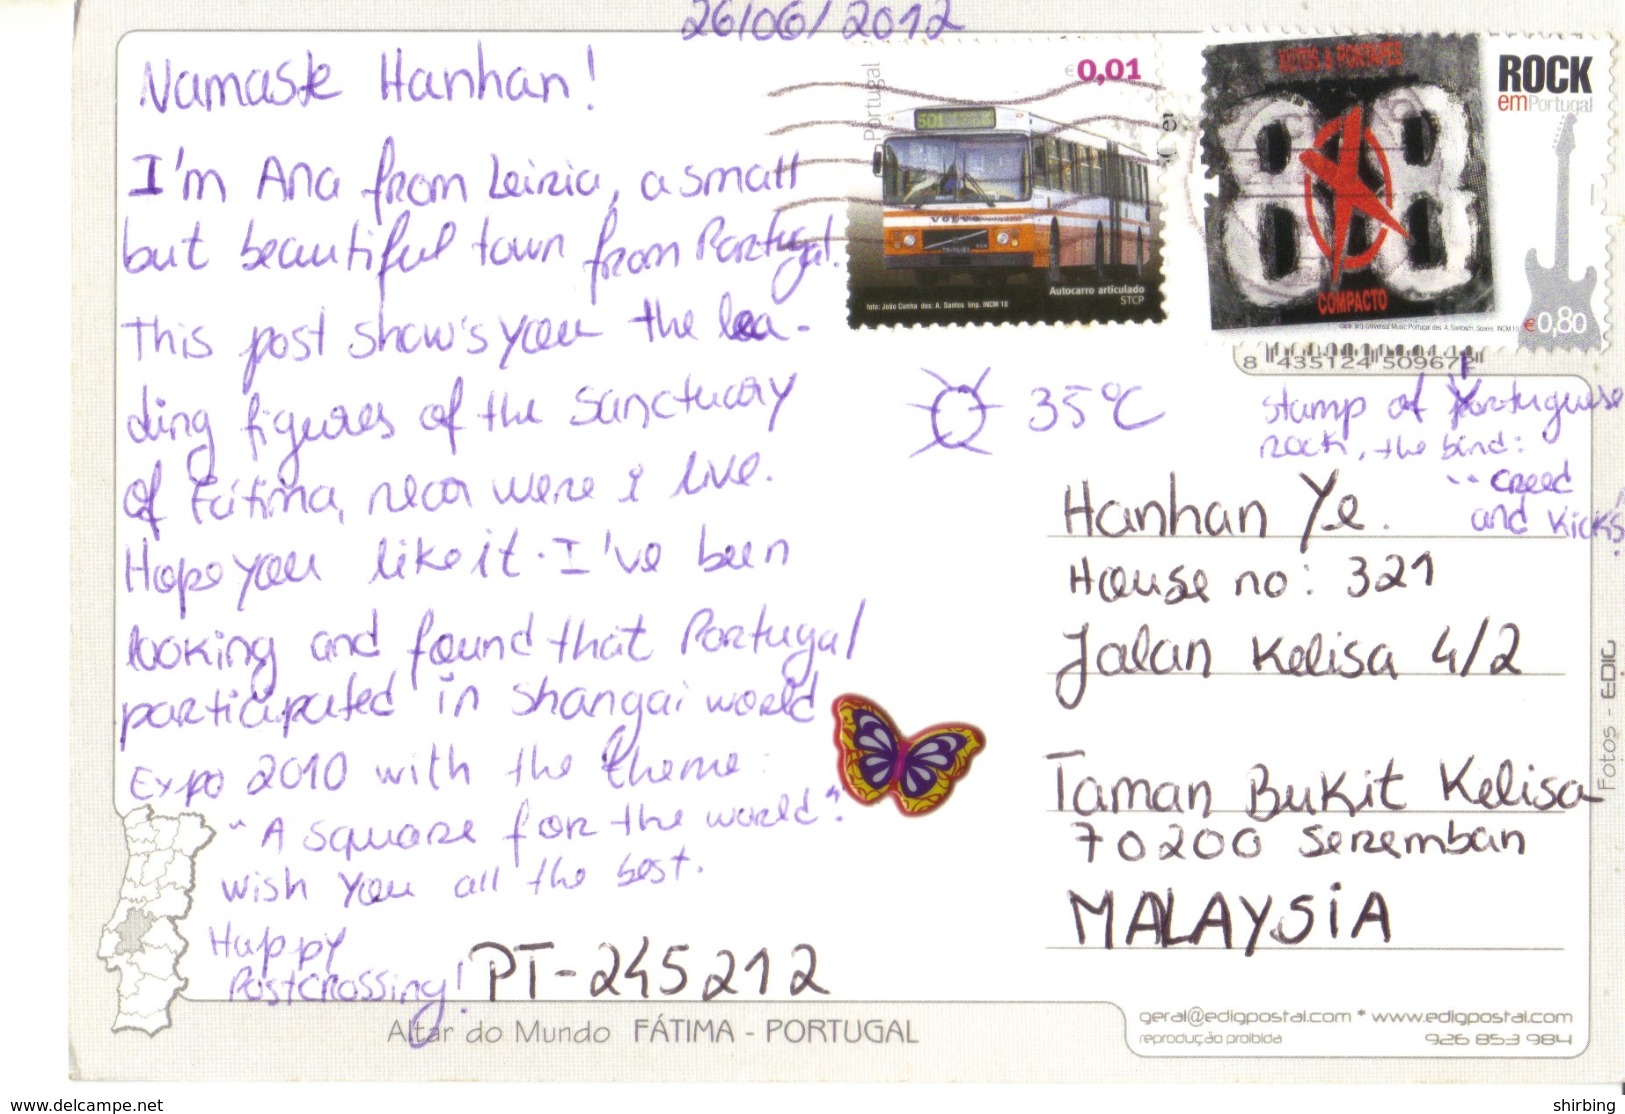 26/06/2012
Namaste Hanhan!
I'm Ana from Leiria, a small
but beautiful town from Portugal.
This post show's you the lea-
ding figures of the Sanctuary
of Fátima, near were i live.
Hope you like it. I've been
looking and found that Portugal
participated in Shangai world
Expo 2010 with the theme:
"A square for the world".
wish you all the best.
Happy
Postcrossing!
PT-245212
Altar do Mundo FÁTIMA - PORTUGAL
Portugal
€0,01
501
VOLVO
Autocarro articulado
STCP
foto: João Cunha des: A. Santos Imp. INCM 10
XUTOS & PONTAPÉS
88
COMPACTO
ROCK
em Portugal
€0,80
8 435124 509672
35°C
stamp of Portuguese
rock, the bind:
"creed
and Kicks"
Hanhan Ye.
House no: 321
Jalan Kelisa 4/2
Taman Bukit Kelisa
70200 Seremban
MALAYSiA
Fotos - EDIG
geral@edigpostal.com * www.edigpostal.com
reprodução proibida 926 853 984
www.delcampe.net
shirbing